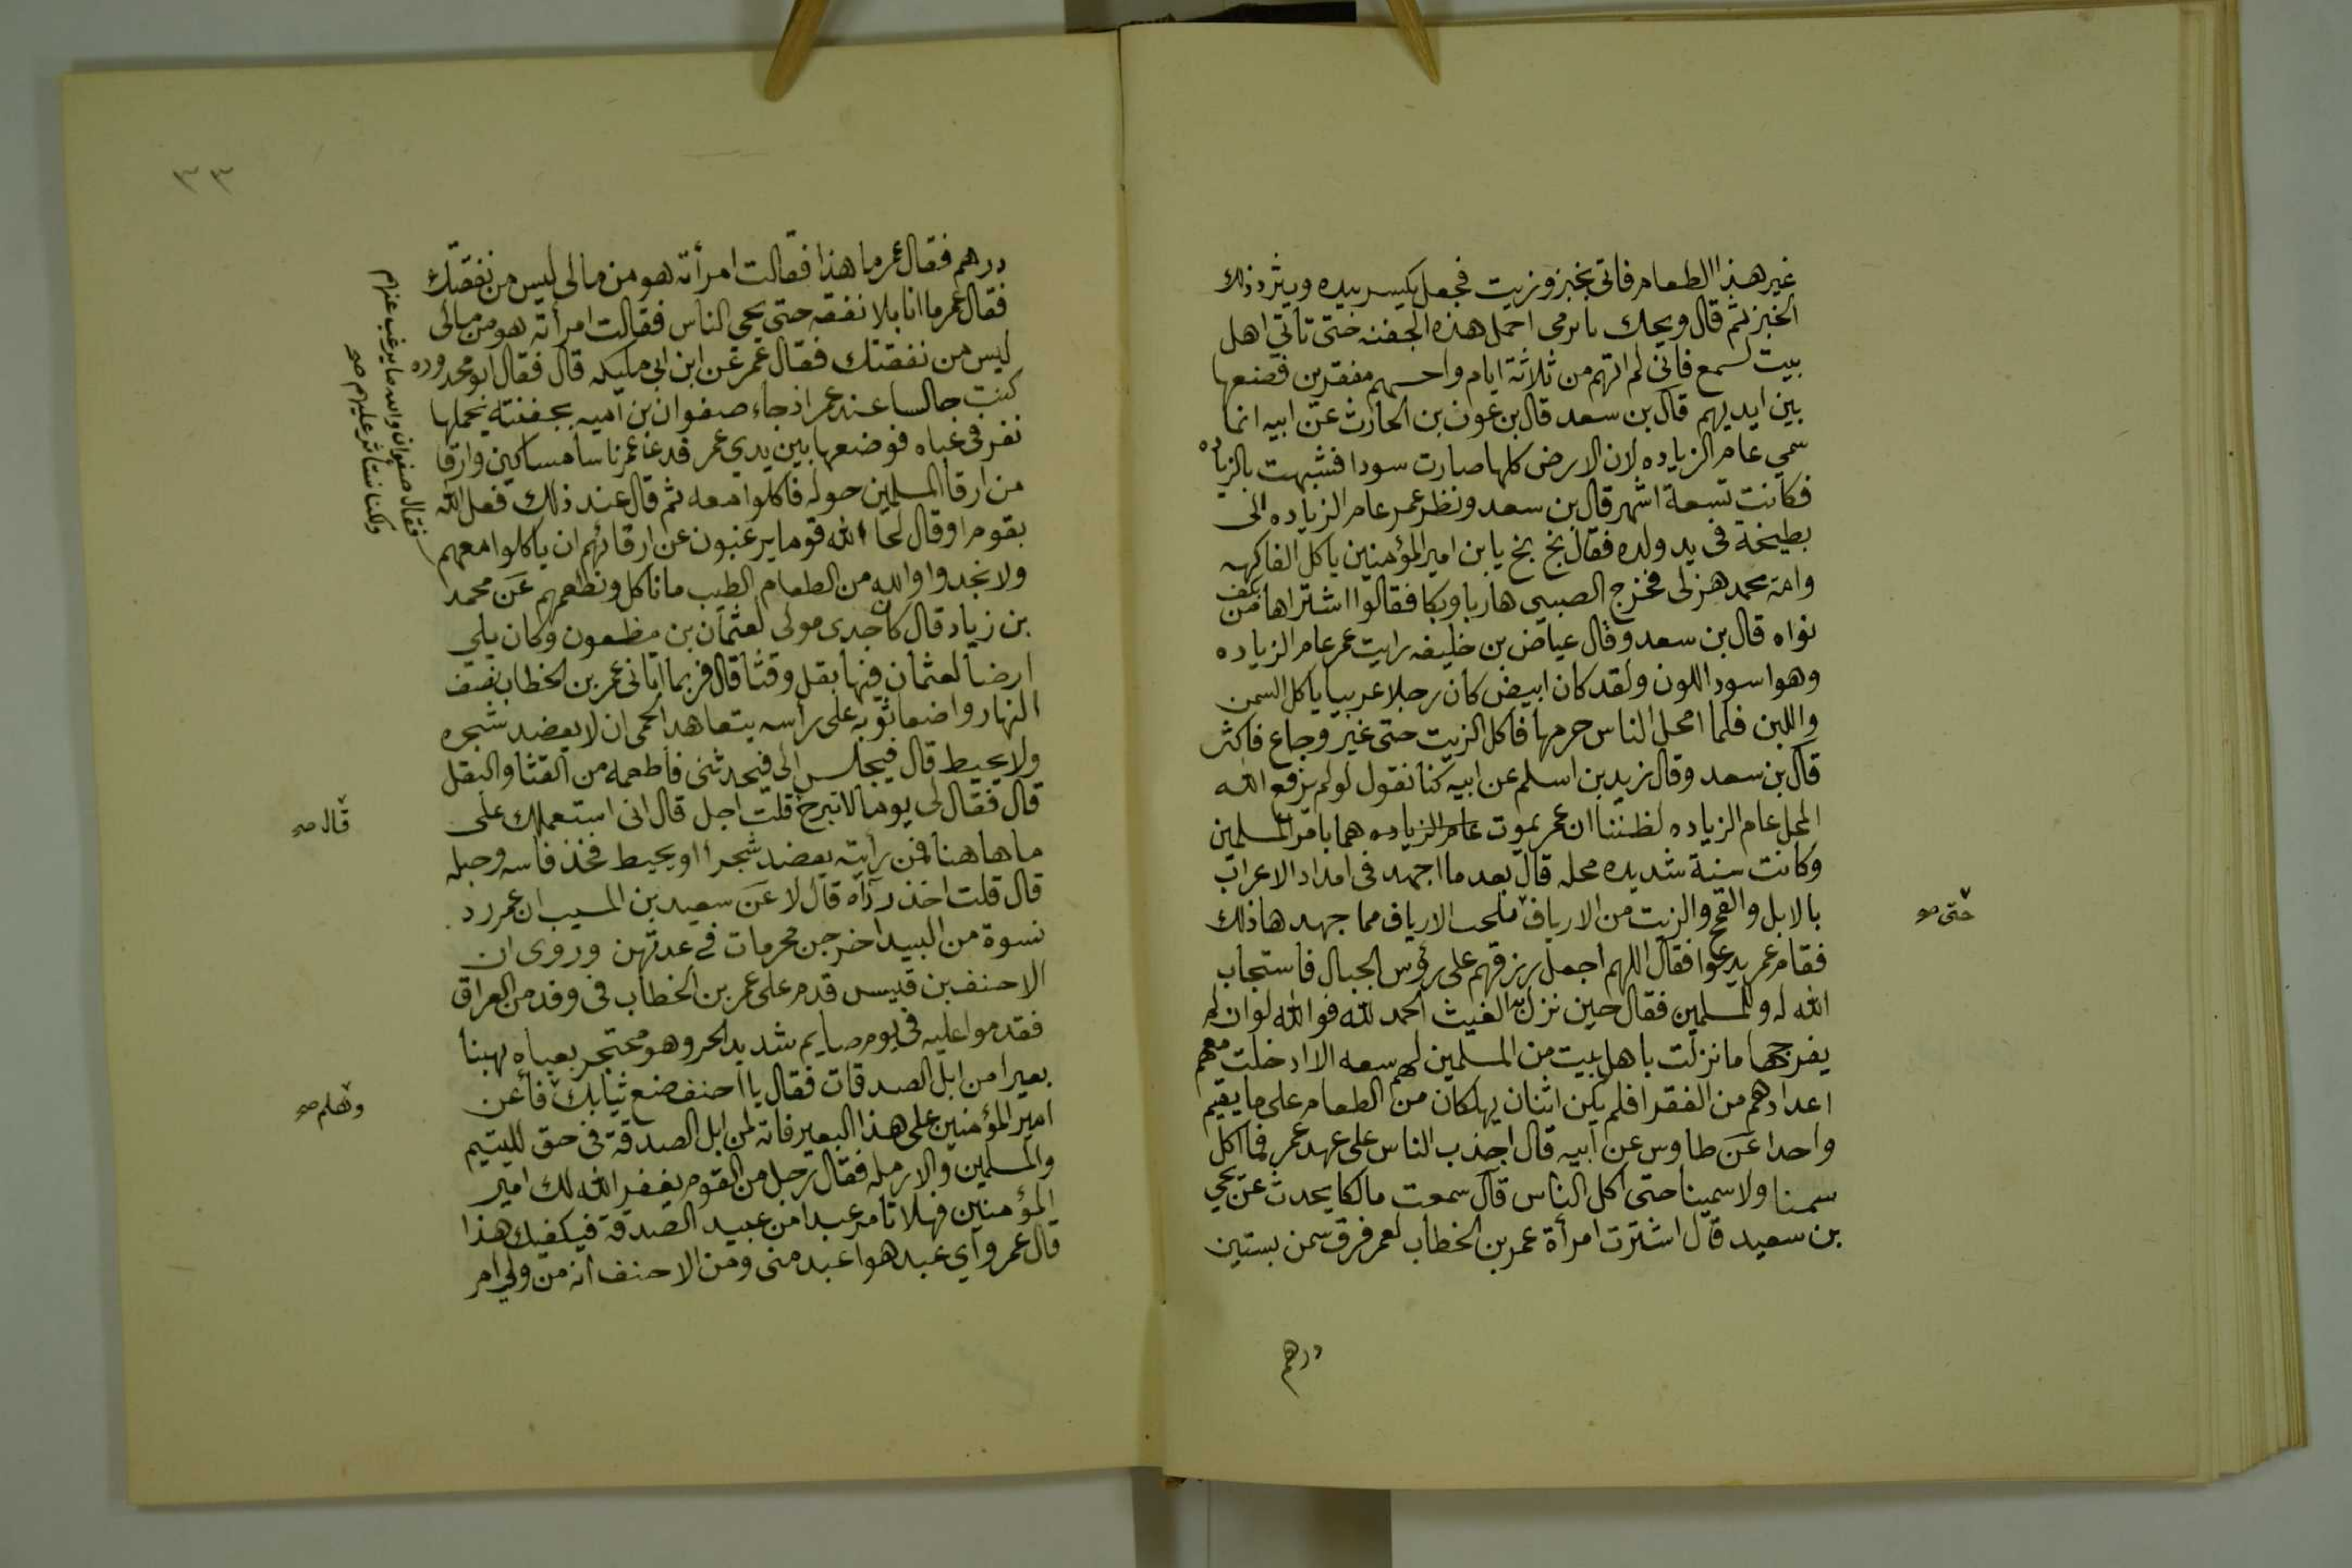 غير هذا الطعام فاتى بخبز وزيت فجعل يكسر بيده ويثرد ذلك
الخبز ثم قال ويحك يا يرمى احمل هذه الجفنه حتى تأتي اهل
بيت لسمع فانى لم اتهم من ثلاثة ايام واحسبهم مفقرين فضعها
بين ايديهم قال بن سعد قال بن عون بن الحارث عن ابيه انما
سمي عام الزياده لان الارض كلها صارت سودا فشبهت بالزياده
فكانت تسعة اشهر قال بن سعد ونظر عمر عام الزياده الى
بطيخة فى يد ولده فقال بخ بخ يا بن امير المؤمنين ياكل الفاكهه
وامة محمد هزلى فخرج الصبي هاربا وبكا فقالوا اشتراها من بكف
نواه قال بن سعد وقال عياض بن خليفه رايت عمر عام الزياده
وهو اسود اللون ولقد كان ابيض كان رجلا عربيا ياكل السمن
واللبن فلما امحل الناس حرمها فاكل الزيت حتى غير وجاع فاكثر
قال بن سعد وقال زيد بن اسلم عن ابيه كنا نقول لو لم يرفع الله
المحل عام الزياده لظننا ان عمر يموت عام الزياده هما بامر المسلمين
وكانت سنة شديده محله قال بعد ما اجهد فى امداد الاعراب
بالابل والقمح والزيت من الارياف ملحب الارياف مما جهدها ذلك
حتى صح
فقام عمر يدعوا فقال اللهم اجعل رزقهم على رؤس الجبال فاستجاب
الله له وللمسلمين فقال حين نزل به الغيث الحمد لله فوالله لو ان لم
يفرجها ما نزلت باهل بيت من المسلمين لهم سعه الا ادخلت معهم
اعدادهم من الفقرا فلم يكن اثنان يهلكان من الطعام على ما يقيم
واحدا عن طاوس عن ابيه قال اجذب الناس على عهد عمر فما اكل
سمنا ولا سمينا حتى اكل الناس قال سمعت مالكا يحدث عن يحي
بن سعيد قال اشترت امرأة عمر بن الخطاب لعمر فرق سمن بستين
درهم
٣٣
درهم فقال عمر ما هذا فقالت امرأته هو من مالى ليس من نفقتك
فقال عمر ما انا بلا نفقه حتى يحي الناس فقالت امرأته هو من مالى
ليس من نفقتك فقال عمر عن ابن ابى مليكه قال فقال ابو محدوره
كنت جالسا عند عمر اذ جاء صفوان بن اميه بجفنته يحملها
نفر فى عباه فوضعها بين يدي عمر فدعا عمر ناسا مساكين وارقا
من ارقا المسلمين حوله فاكلوا معه ثم قال عند ذلك فعل الله
بقوم او قال لحا الله قوما يرغبون عن ارقائهم ان ياكلوا معهم
فقال صفوان والله ما يرغب عنهم
ولكنا نستأثر عليهم صح
ولا نجدوا والله من الطعام الطيب ما ناكل ونطعمهم عن محمد
بن زياد قال كان جدى مولى لعثمان بن مظعون وكان يلي
ارضا لعثمان فيها بقل وقثا قال فربما اتانى عمر بن الخطاب نصف
النهار واضعا ثوبه على رأسه يتعاهد الحمى ان لا يعضد شجره
ولا يحيط قال فيجلس الى فيحدثنى فاطعمه من القثا والبقل
قال فقال لى يوما لا تبرح قلت اجل قال انى استعملك على
قال صح
ما هاهنا فمن رأيته يعضد شجرا او يحيط فخذ فاسه وحبله
قال قلت اخذ رداه قال لا عن سعيد بن المسيب ان عمر رد
نسوة من البيدا خرجن محرمات في عدتهن وروى ان
الاحنف بن قيس قدم على عمر بن الخطاب فى وفد من العراق
فقدموا عليه فى يوم صايم شديد الحر وهو محتجر بعباه يهنا
بعيرا من ابل الصدقات فقال يا احنف ضع ثيابك فأعن
وهلم صح
امير المؤمنين على هذا البعير فانه لمن ابل الصدقة فى حق لليتيم
والمسلمين والارمله فقال رجل من القوم يغفر الله لك امير
المؤمنين فهلا تامر عبدا من عبيد الصدقة فيكفيك هذا
قال عمر وأي عبد هو اعبد منى ومن الاحنف انه من ولي امر